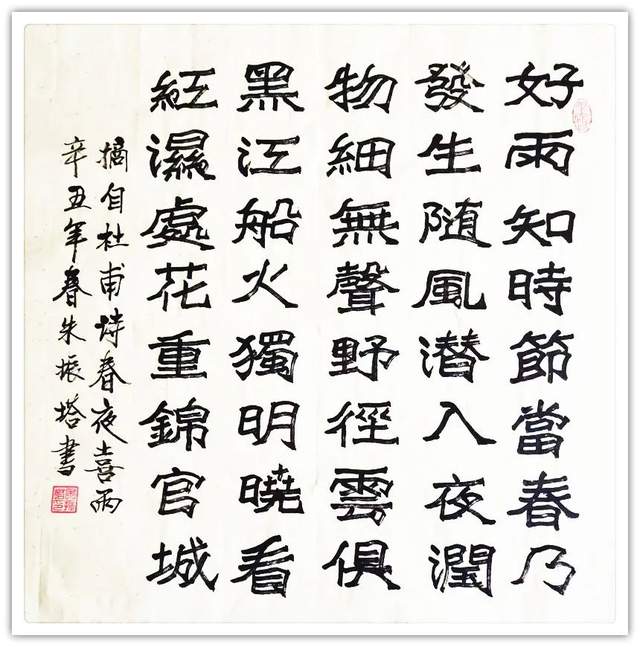 好雨知時節當春乃
發生随風潜入夜潤
物細無聲野徑雲俱
黑江船火獨明曉看
紅濕處花重錦官城
摘自杜甫诗春夜喜雨
辛丑年春朱振塔書